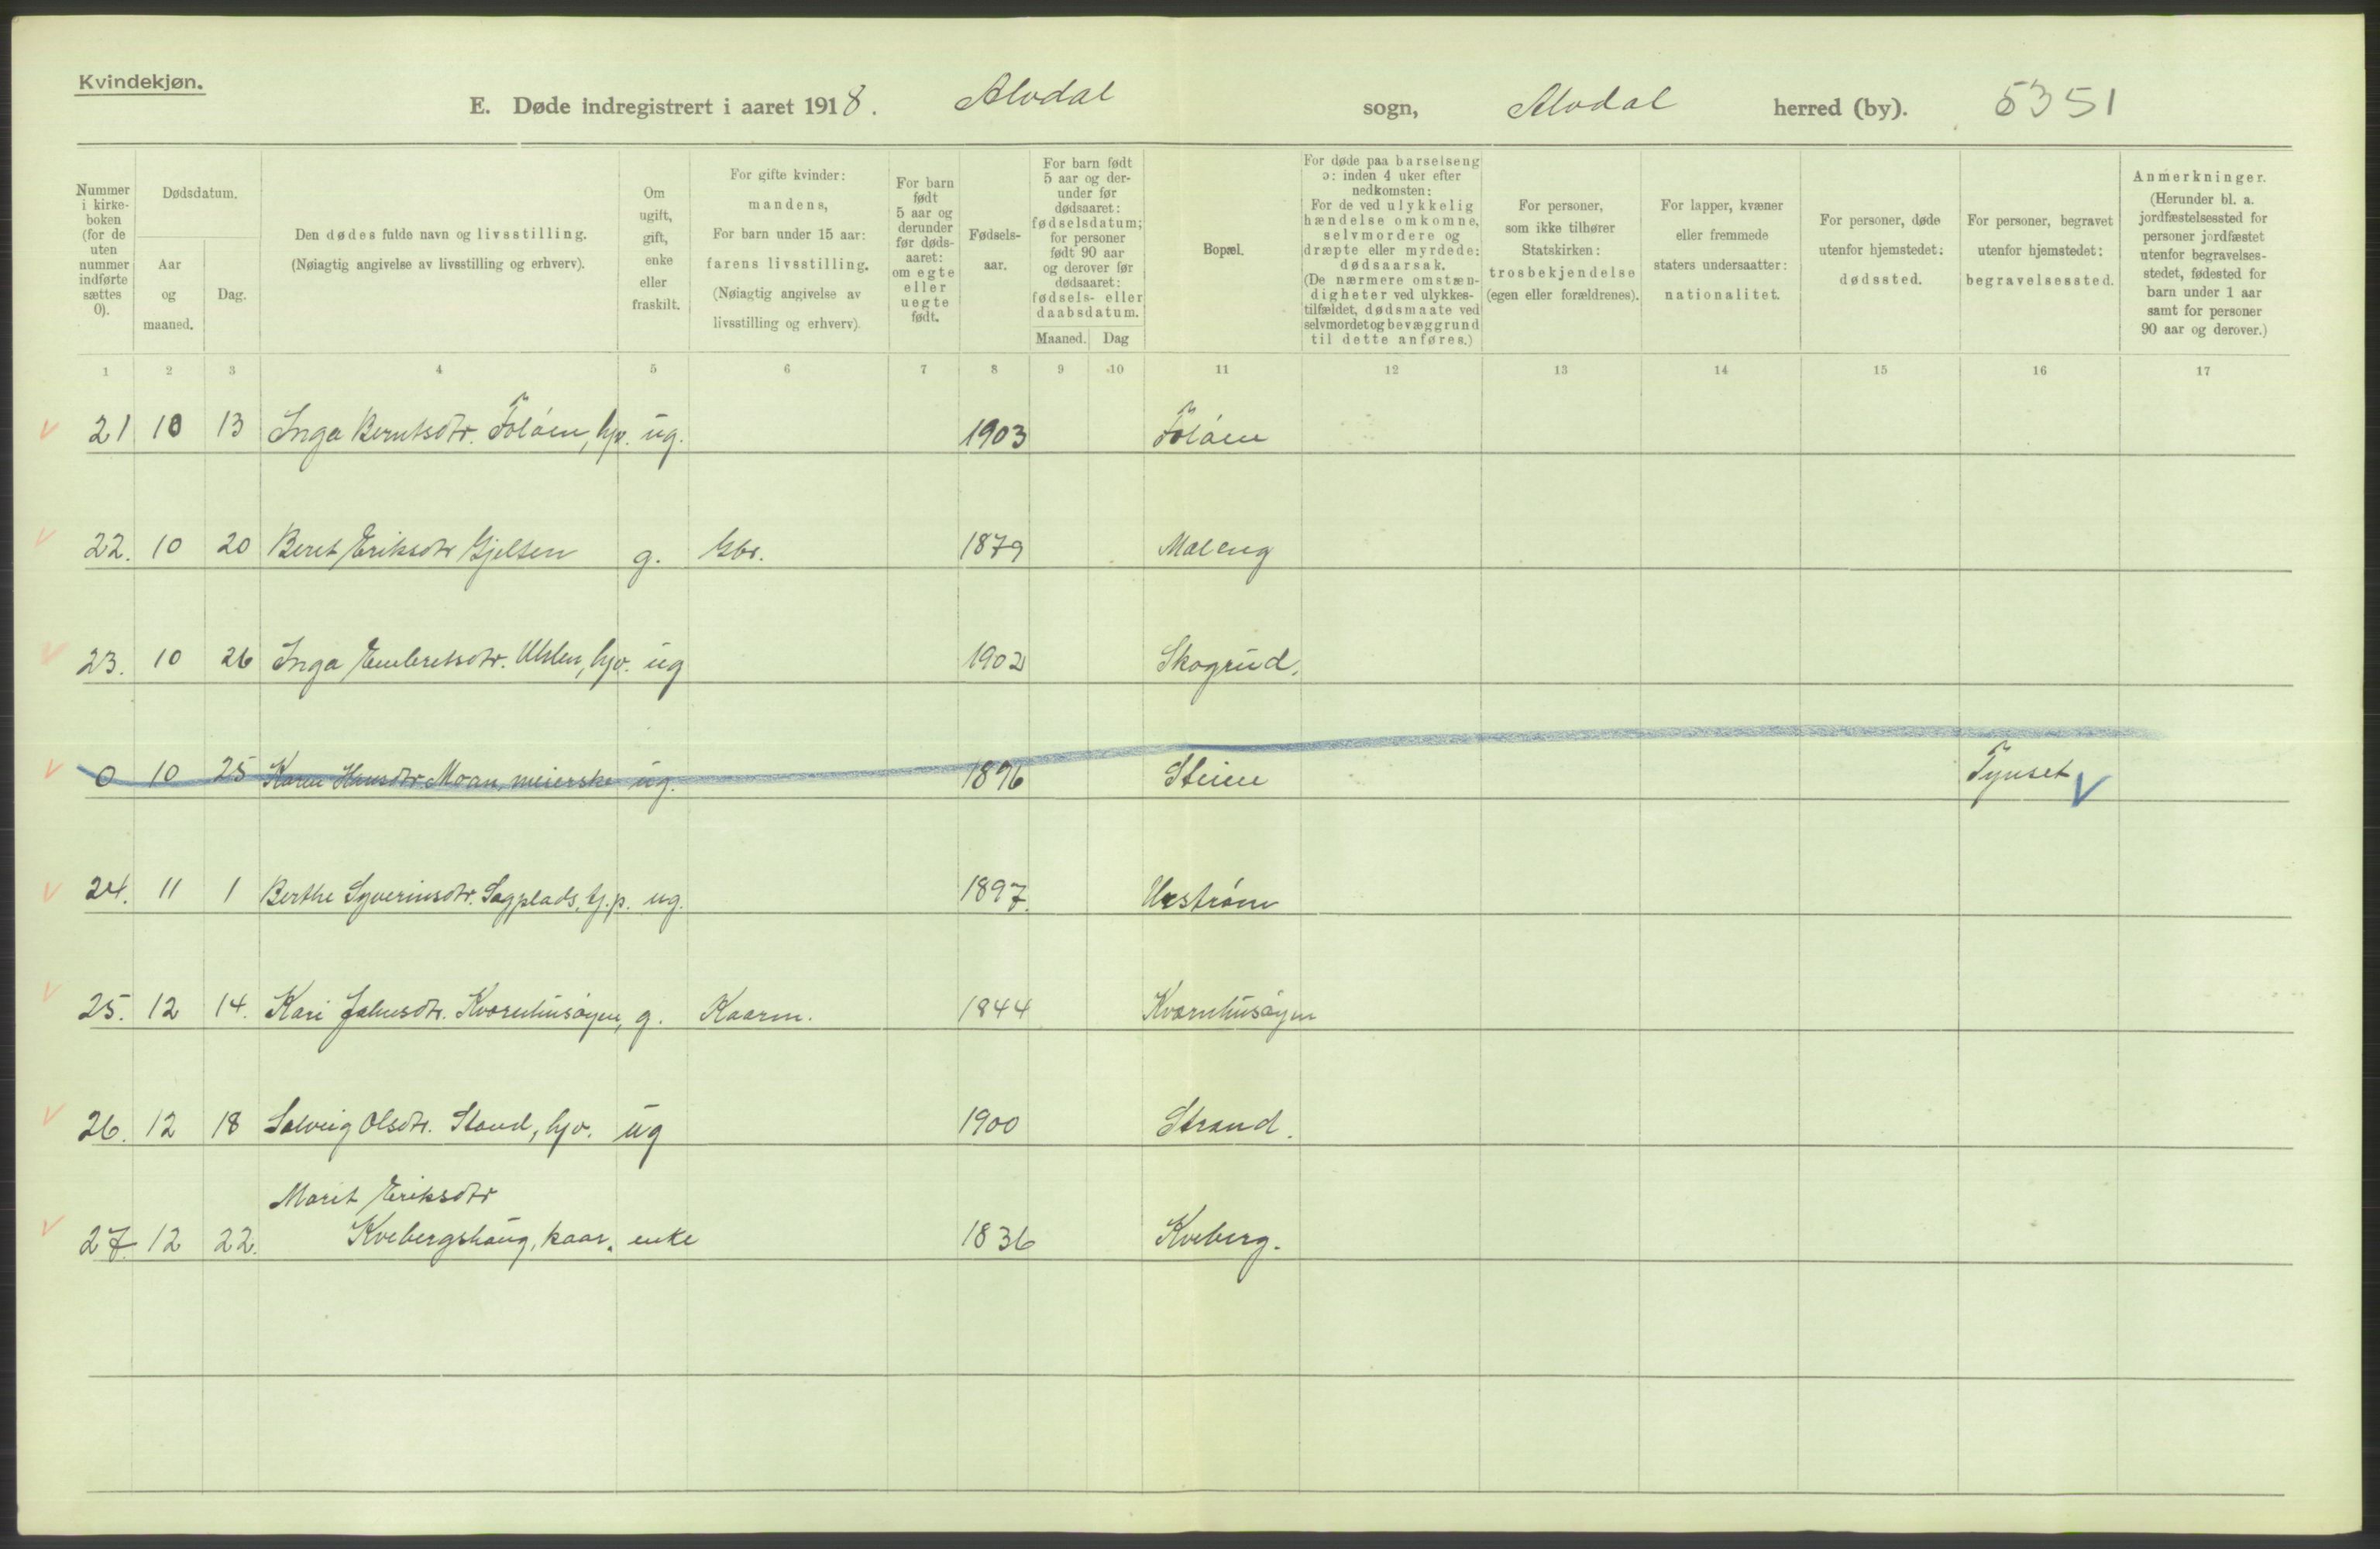 Kvindekjøn.
E. Døde indregistrert i aaret 1918. Alvdal sogn, Alvdal herred (by). 5351
Nummer i kirkeboken (for de uten nummer indførte sættes 0).
Dødsdatum.
Aar og maaned.
Dag.
Den dødes fulde navn og livsstilling.
(Nøiagtig angivelse av livsstilling og erhverv).
Om ugift, gift, enke eller fraskilt.
For gifte kvinder: mandens,
For barn under 15 aar: farens livsstilling.
(Nøiagtig angivelse av livsstilling og erhverv)
For barn født 5 aar og derunder før dødsaaret: om egte eller uegte født.
Fødselsaar.
For barn født 5 aar og derunder før dødsaaret: fødselsdatum; for personer født 90 aar og derover før dødsaaret: fødsels- eller daabsdatum.
Maaned. Dag
Bopæl.
For døde paa barselseng ɔ: inden 4 uker efter nedkomsten:
For de ved ulykkelig hændelse omkomne, selvmordere og dræpte eller myrdede: dødsaarsak.
(De nærmere omstændigheter ved ulykkestilfældet, dødsmaate ved selvmordet og bevæggrund til dette anføres.)
For personer, som ikke tilhører Statskirken: trosbekjendelse (egen eller forældrenes).
For lapper, kvæner eller fremmede staters undersaatter: nationalitet.
For personer, døde utenfor hjemstedet: dødssted.
For personer, begravet utenfor hjemstedet: begravelsessted.
Anmerkninger.
(Herunder bl. a. jordfæstelsessted for personer jordfæstet utenfor begravelsesstedet, fødested for barn under 1 aar samt for personer 90 aar og derover.)
1 2 3 4 5 6 7 8 9 10 11 12 13 14 15 16 17
21 10 13 Inga Berntsdtr. Foløien, hjv. ug. 1903 Foløien
22. 10 20 Beret Eriksdtr Gjelten g. Gbr. 1879 Maleng
23. 10 26 Inga Embretsdtr. Uhlen, hjv. ug 1902 Skogrud.
0 10 25 Karen Hansdtr. Moan, meierske ug. 1896 Steien Tynset
24. 11 1 Berthe Syverinsdtr. Sagplads, tj.p. ug. 1897. Urstrøm
25. 12 14. Kari Johnsdtr. Kvernhusøyen, g. Kaarm. 1844 Kvernhusøyen
26. 12 18 Solveig Olsdtr. Stand, hjv. ug 1900 Strand.
Marit Eriksdtr
27. 12 22. Kvebergshaug, kaar. enke 1836 Kveberg.